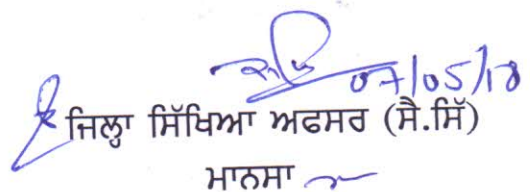 07/05/18
ਜਿਲ੍ਹਾ ਸਿੱਖਿਆ ਅਫਸਰ (ਸੈ.ਸਿੱ)
ਮਾਨਸਾ